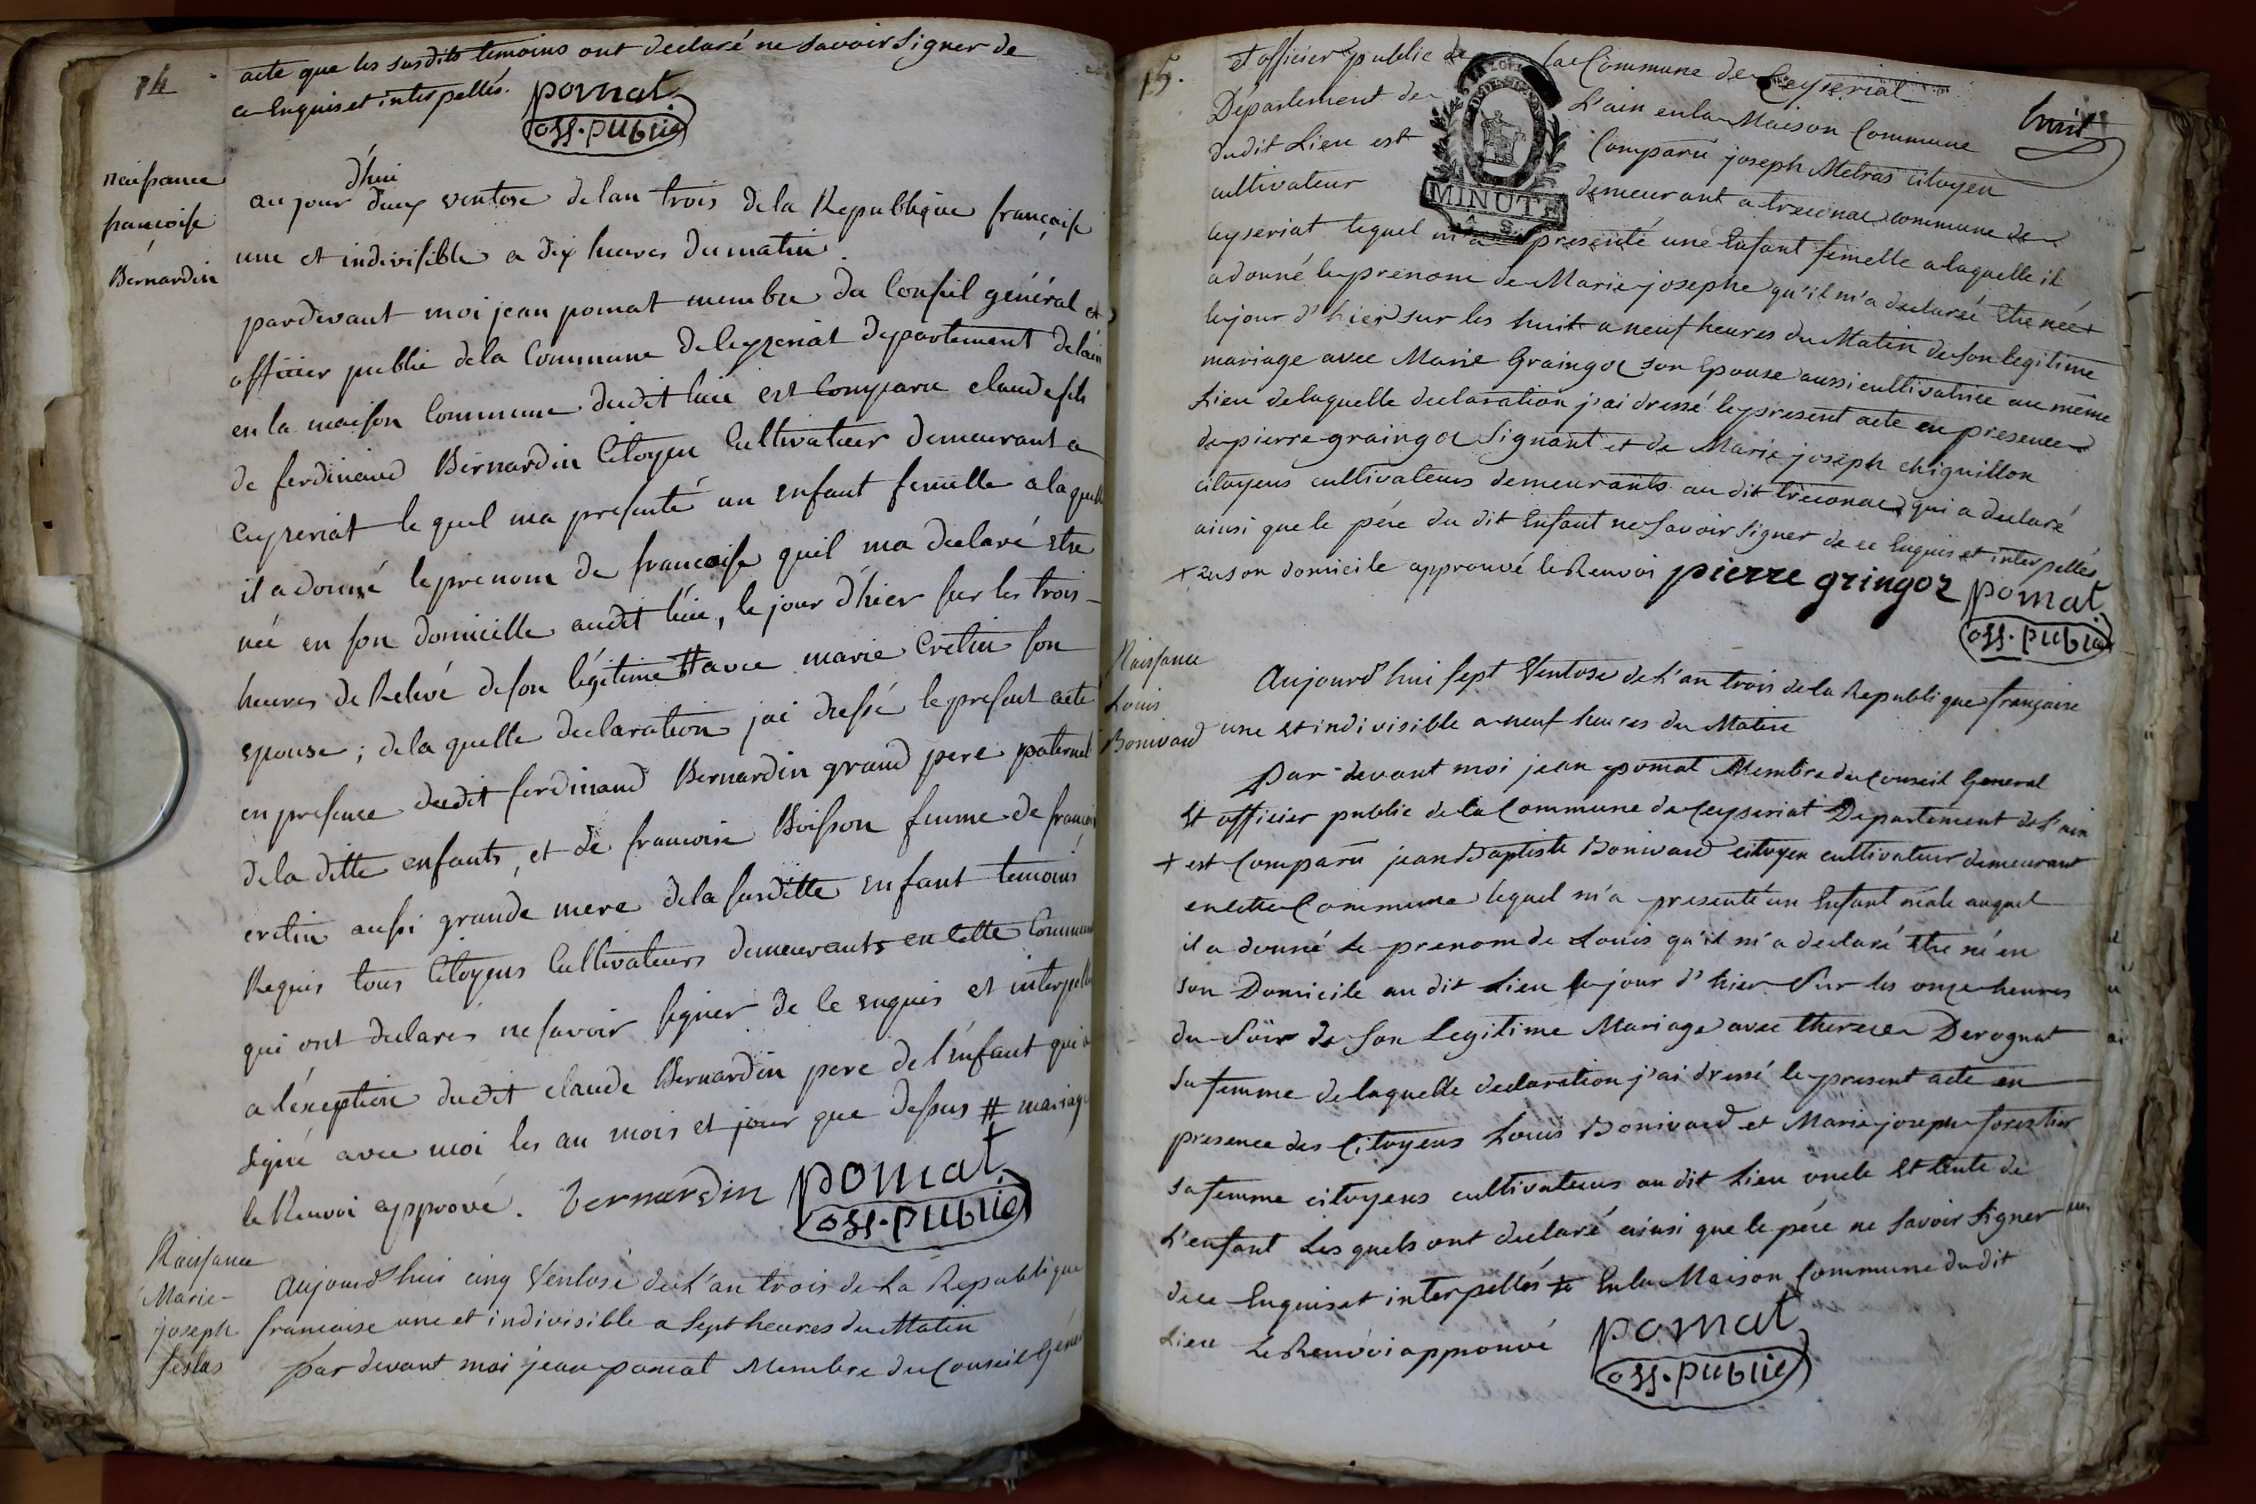 14
acte que les susdits temoins ont declaré ne savoir signer de
ce Enquis et interpellés. pomat
off. public
naissance
françoise
Bernardin
au jour d'hui deux ventose de lan trois de la Republique française
une et indivisible a dix heures du matin
pardevant moi jean pomat membre du Conseil général et
officier public de la Commune de Ceyzeriat departement de lain
en la maison Commune dudit lieu est Comparu claude fils
de ferdinand Bernardin Citoyen Cultivateur demeurant a
Ceyzeriat le quel ma presenté un enfant femelle a laquelle
il a donné le prenom de francoise quil ma declaré etre
née en son domicille audit lieu, le jour d'hier sur les trois
heures de Relevé de son légitime # avec marie Cretin son
epouse; de la quelle declaration jai dressé le present acte
en presence dudit ferdinand Bernardin grand pere paternel
de la ditte enfants, et de francoise Boisson femme de francois
cretin aussi grande mere de la susditte enfant temoins
Requis tous Citoyens Cultivateurs demeurants en Cette Commune
qui ont declarés ne savoir signer de Ce enquis et interpellé
a léxeption dudit claude Bernardin pere de l'énfant qui a
signé avec moi les an mois et jour que dessus # mariage
le Renvoi approuvé. bernardin pomat
off. public
Naissance
Marie-
joseph
Aujourd'hui cinq Ventose de L'an trois de La Republique
francaise une et indivisible a Sept heures du Matin
par devant moi jean pomat Membre du Conseil Géné
15.
Et officier public de la Commune de Ceyseriat
huit
Département de L'ain en la Maison Commune
dudit Lieu est Comparu joseph Metras citoyen
cultivateur demeurant a treconac commune de
MINUTE
ceyseriat lequel m'a présenté une Enfant femelle a laquelle il
a donné le prenom de Marie josephe qu'il m'a declaré Etre née +
le jour d'hier sur les huit a neuf heures du Matin de son legitime
mariage avec Marie Graingor son Epouse aussi cultivatrice au même
Lieu de laquelle declaration j'ai dressé le present acte en presence
de pierre graingor Signant et de Marie joseph chiquillon
citoyens cultivateurs demeurants au dit treconac qui a declaré
ainsi que le pére du dit Enfant ne Savoir Signer de ce Enquis et interpellés
+ en son domicile approuvé le Renvoi pierre gringor pomat
off. public
Naissance
Louis
Bonivard
Aujourd'hui sept Ventose de L'an trois de la Republique française
une et indivisible a neuf heures du Matin
Par-devant moi jean pomat Membre du Conseil General
Et officier public de la Commune de Ceyseriat Departement de L'ain
+ est Comparu jean Baptiste Bonivard citoyen cultivateur demeurant
en cette Commune lequel m'a presenté un Enfant mâle auquel
il a donné Le prenom de Louis qu'il m'a declaré Etre né en
son Domicile au dit Lieu le jour d'hier Sur les onze heures
du Soir de Son Legitime Mariage avec therese Derognat
Sa femme de laquelle declaration j'ai dressé le present acte en
presence des Citoyens Louis Bonivard et Marie joseph forestier
Sa femme citoyens cultivateurs au dit Lieu oncle Et tente de
L'enfant Les quels ont declaré ainsi que le pére ne Savoir Signer
de ce Enquis et interpellés + En la Maison Commune du dit
Lieu Le Renvoi approuvé pomat
off. public